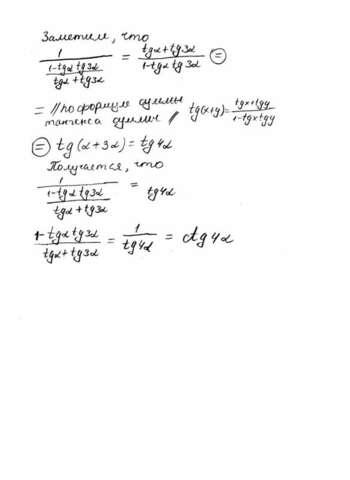 Заметим, что
1/((1-tgα tg3α)/(tgα+tg3α)) = (tgα+tg3α)/(1-tgα tg3α) =
= // по формуле суммы тангенса суммы // tg(x+y)=(tgx+tgy)/(1-tgxtgy)
= tg(α+3α)=tg4α
Получается, что
1/((1-tgα tg3α)/(tgα+tg3α)) = tg4α
(1-tgα tg3α)/(tgα+tg3α) = 1/tg4α = ctg4α